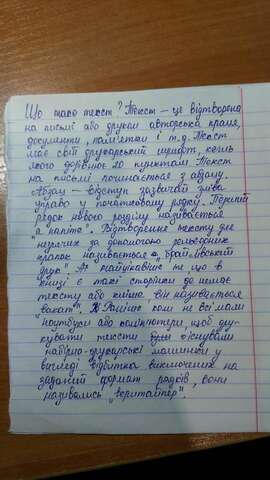 Що таке текст? Текст – це відтворена
на письмі або друком авторська праця,
документи, пам'ятки і т.д. Текст
має свій друкарський шрифт, кегль
якого дорівнює 20 пунктам. Текст
на письмі починається з абзацу.
Абзац – відступ зазвичай зліва
управо у початковому рядку. Перший
рядок нового розділу називається
"а капіте". Відтворення тексту для
незрячих за допомогою рельєфних
крапок називається "брайлівський
друк". А найцікавіше те що в
книзі є такі сторінки де немає
тексту або кліше він називається
"вакат". Раніше коли не всі мали
ноутбуки або комп'ютери, щоб дру-
кувати тексти існували
набірно-друкарські машинки у
вигляді відбитка виключених на
заданий формат рядків, вони
називались "веритайпер".